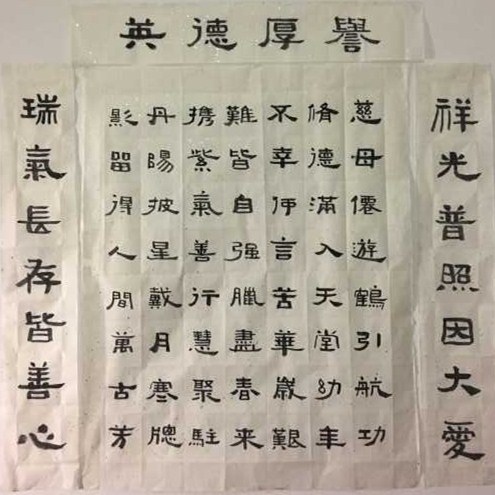 譽厚德英
祥光普照因大愛
慈母僊遊鶴引航功
脩德滿入天堂幼年
不幸伊言苦華歲艱
難皆自强臘盡春来
携紫氣善行慧聚駐
丹陽披星戴月寒牕
影留得人間萬古芳
瑞氣長存皆善心